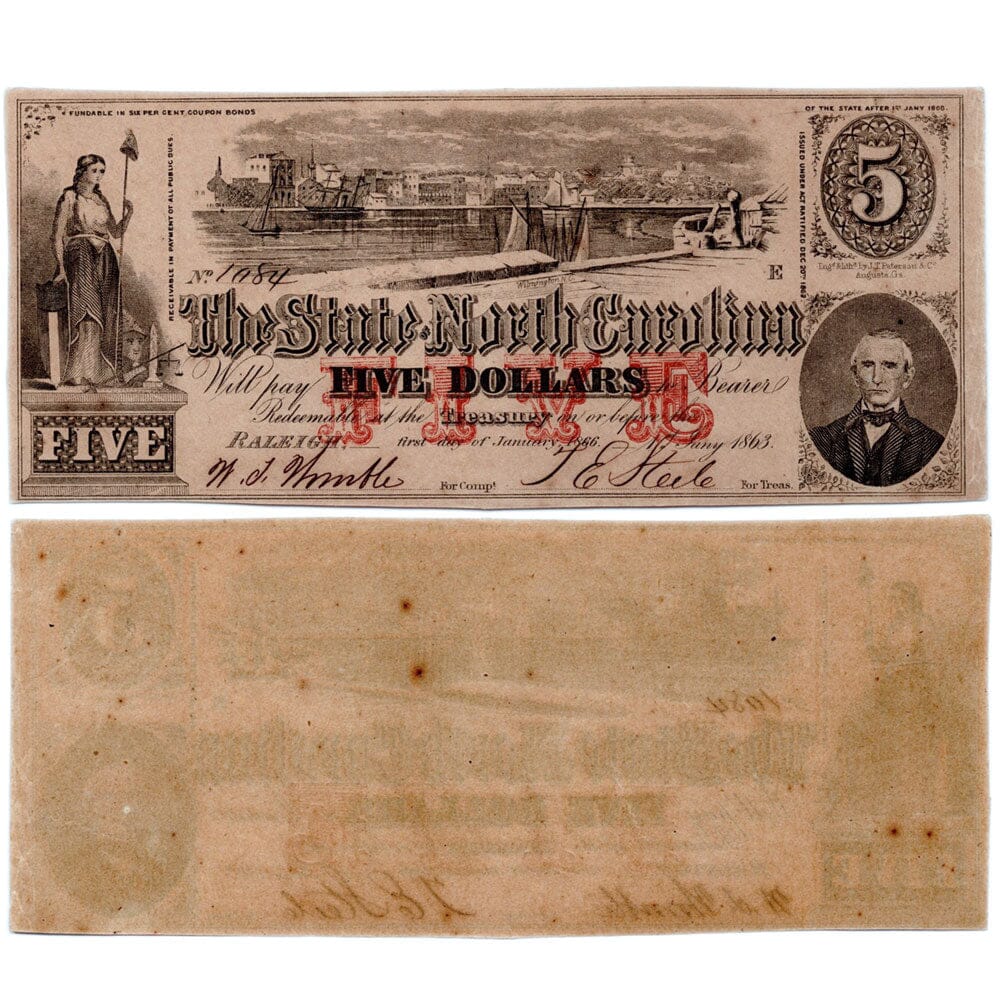 FUNDABLE IN SIX PER CENT COUPON BONDS
OF THE STATE AFTER 1ST JANY 1866.
RECEIVABLE IN PAYMENT OF ALL PUBLIC DUES.
ISSUED UNDER ACT RATIFIED DEC 20TH 1862
5
Engd & Lithd by J.T. Paterson & Co
Augusta, Ga.
No 1984
Wilmington N.C.
E
The State of North Carolina
Will pay FIVE DOLLARS to Bearer
FIVE
Redeemable at the Treasury on or before the
RALEIGH. first day of January 1866. Jany 1863.
FIVE
W. J. Womble For Compt T E Steele For Treas.